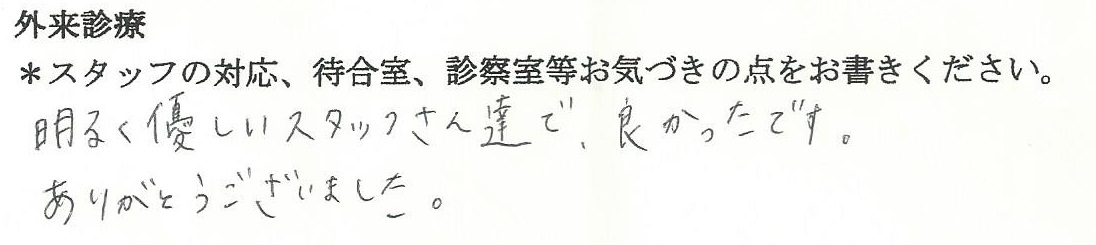 外来診療
＊スタッフの対応、待合室、診察室等お気づきの点をお書きください。
明るく優しいスタッフさん達で、良かったです。
ありがとうございました。